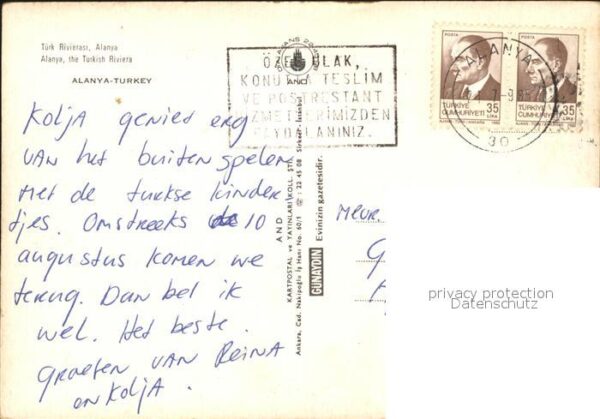 Türk Rivierası, Alanya
Alanya, the Turkish Riviera
ALANYA-TURKEY
Kolja geniet erg
van het buiten spelen
met de turkse kinder
tjes. Omstreeks 10
augustus komen we
terug. Dan bel ik
wel. Het beste.
Groeten van Reina
en Kolja.
ULAK,
KONUTTA TESLİM
VE POSTRESTANT
HİZMETLERİMİZDEN
FAYDALANINIZ.
AND
KARTPOSTAL ve YAYINLARI KOLL. ŞTİ.
Ankara, Cad. Nakipoğlu İş Hanı No. 60/1 ☎: 22 45 08 Sirkeci-İstanbul
GÜNAYDIN Evinizin gazetesidir.
POSTA
TÜRKİYE
CUMHURİYETİ
35
LİRA
POSTA
TÜRKİYE
CUMHURİYETİ
35
LİRA
ALANYA
Mevr.
privacy protection
Datenschutz